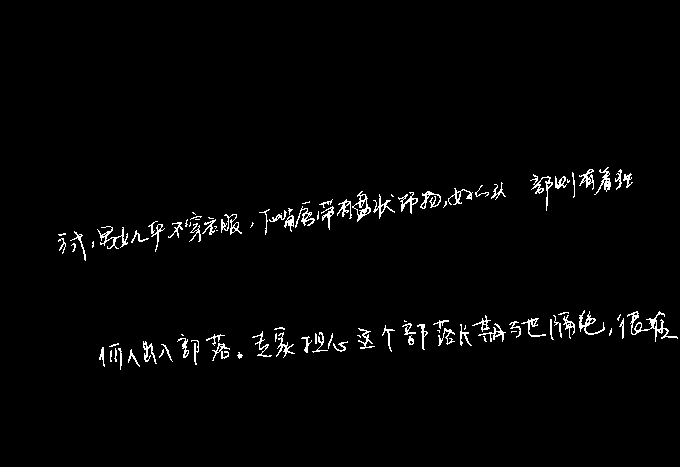 方式，男女几乎不穿衣服，下嘴唇带有盘状饰物，女人头部则有着独
何人出入部落。专家担心这个部落长期与世隔绝，很难